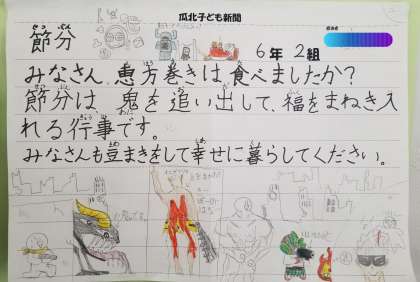 瓜北子ども新聞
節分
6年 2組
みなさん、恵方巻きは食べましたか?
節分は、鬼を追い出して、福をまねき入
れる行事です。
みなさんも豆まきをして幸せに暮らしてください。